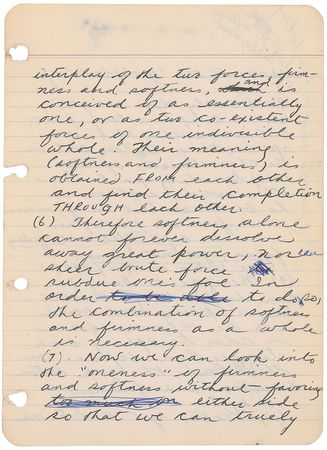 interplay of the two forces, firm-
ness and softness, and is
conceived of as essentially
one, or as two co-existent
forces of one indivisible
whole. Their meaning
(softness and firmness) is
obtained FROM each other
and find their completion
THROUGH each other.
(6) Therefore softness alone
cannot forever dissolve
away great power, nor can
sheer brute force
subdue one's foe. In
order to be able to do so,
the combination of softness
and firmness as a whole
is necessary.
(7). Now we can look into
the "oneness" of firmness
and softness without favoring
too much on either side
so that we can truely